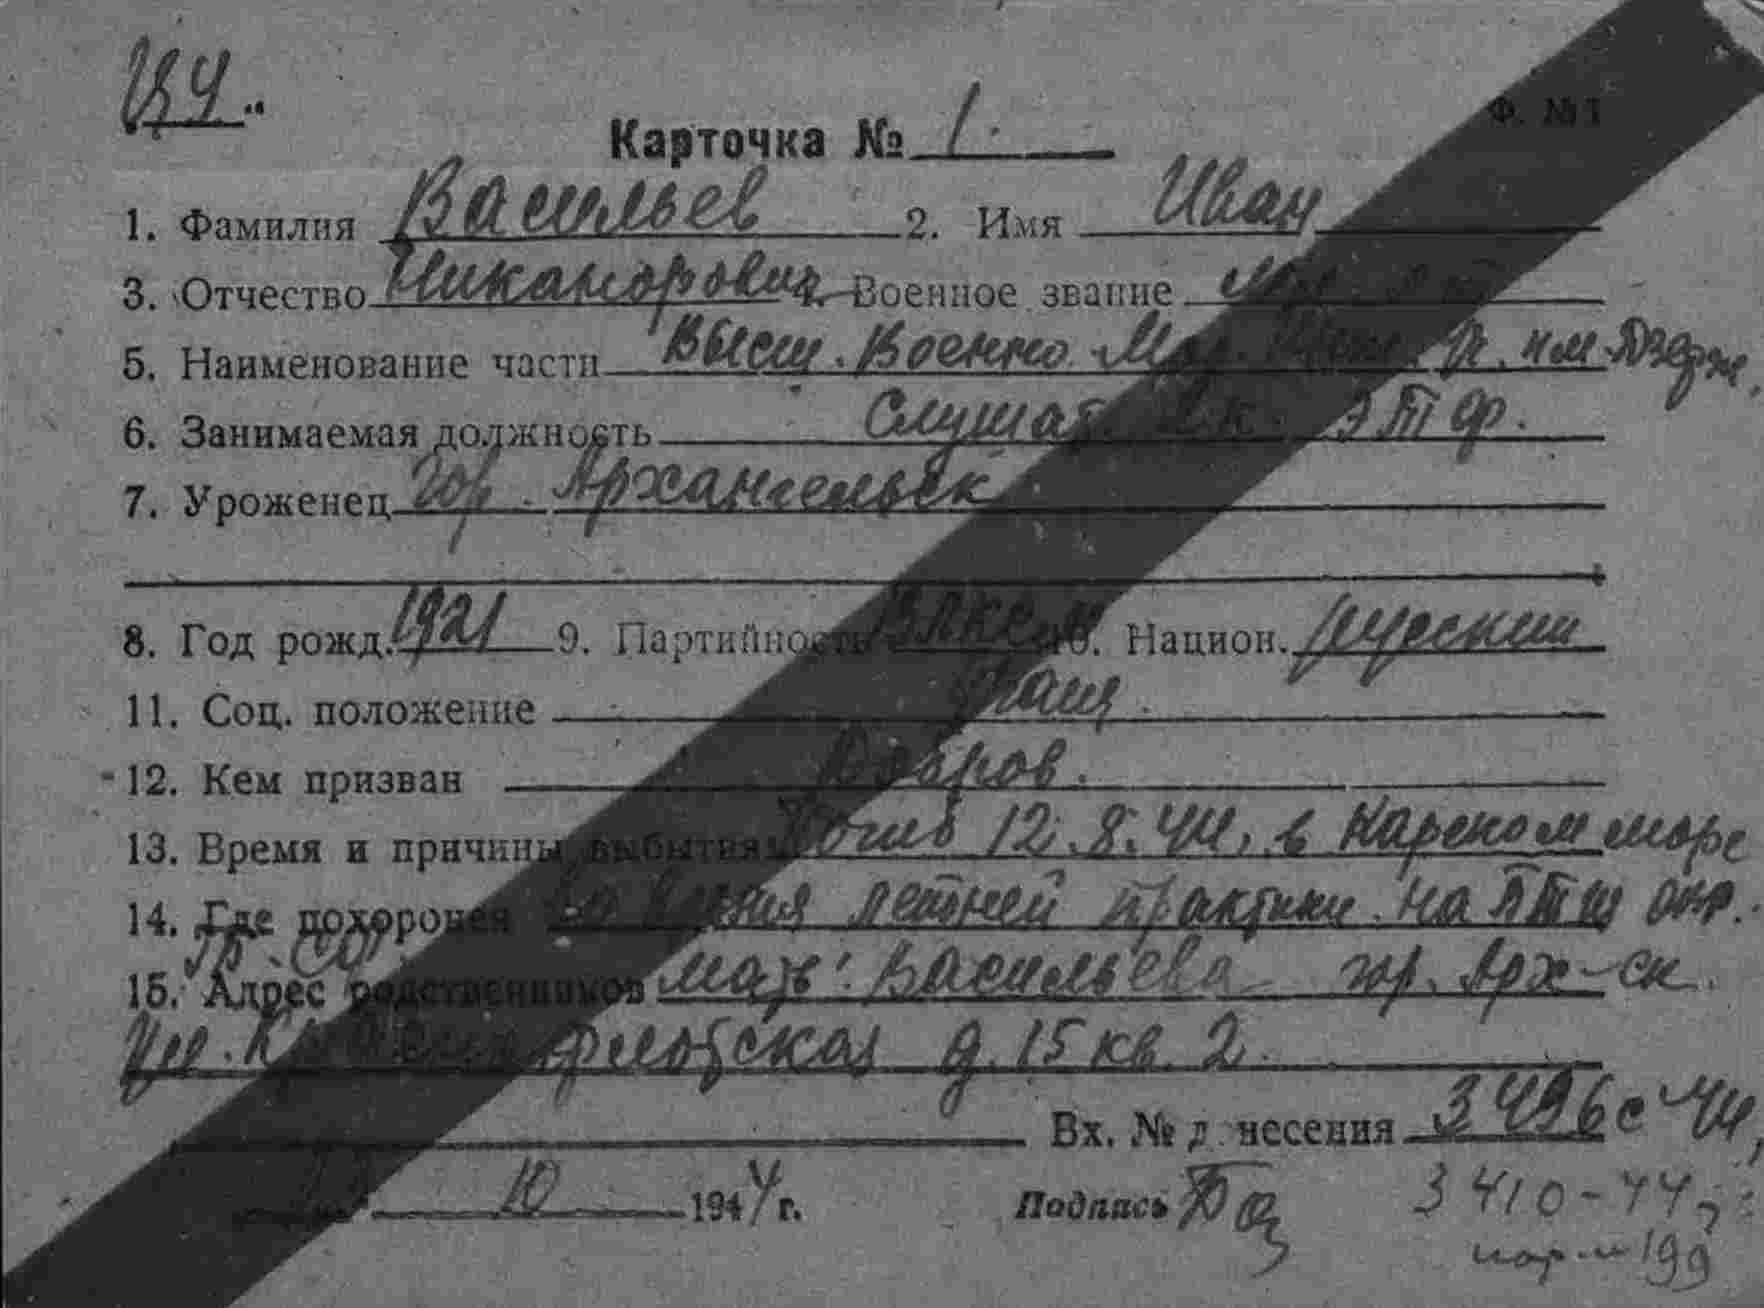 Ф. №1
Карточка № 1.
1. Фамилия Васильев 2. Имя Иван
3. Отчество Никанорович Военное звание
5. Наименование части Высш. Военно. Мор. им. Дзерж,
6. Занимаемая должность Слушат. ЭТФ.
7. Уроженец гор. Архангельск
8. Год рожд. 1921 9. Партийность ВЛКСМ 10. Национ. русский
11. Соц. положение
12. Кем призван Добров.
13. Время и причины выбытия Погиб 12.8.44. в Карском море
14. Где похоронен во время летней практики на
15. Адрес родственников мать: Васильева гор. Арх-ск.
ул. д. 15 кв. 2.
Вх. № д несения 3496с 44,
10 1944 г. Подпись 3410-44,
199